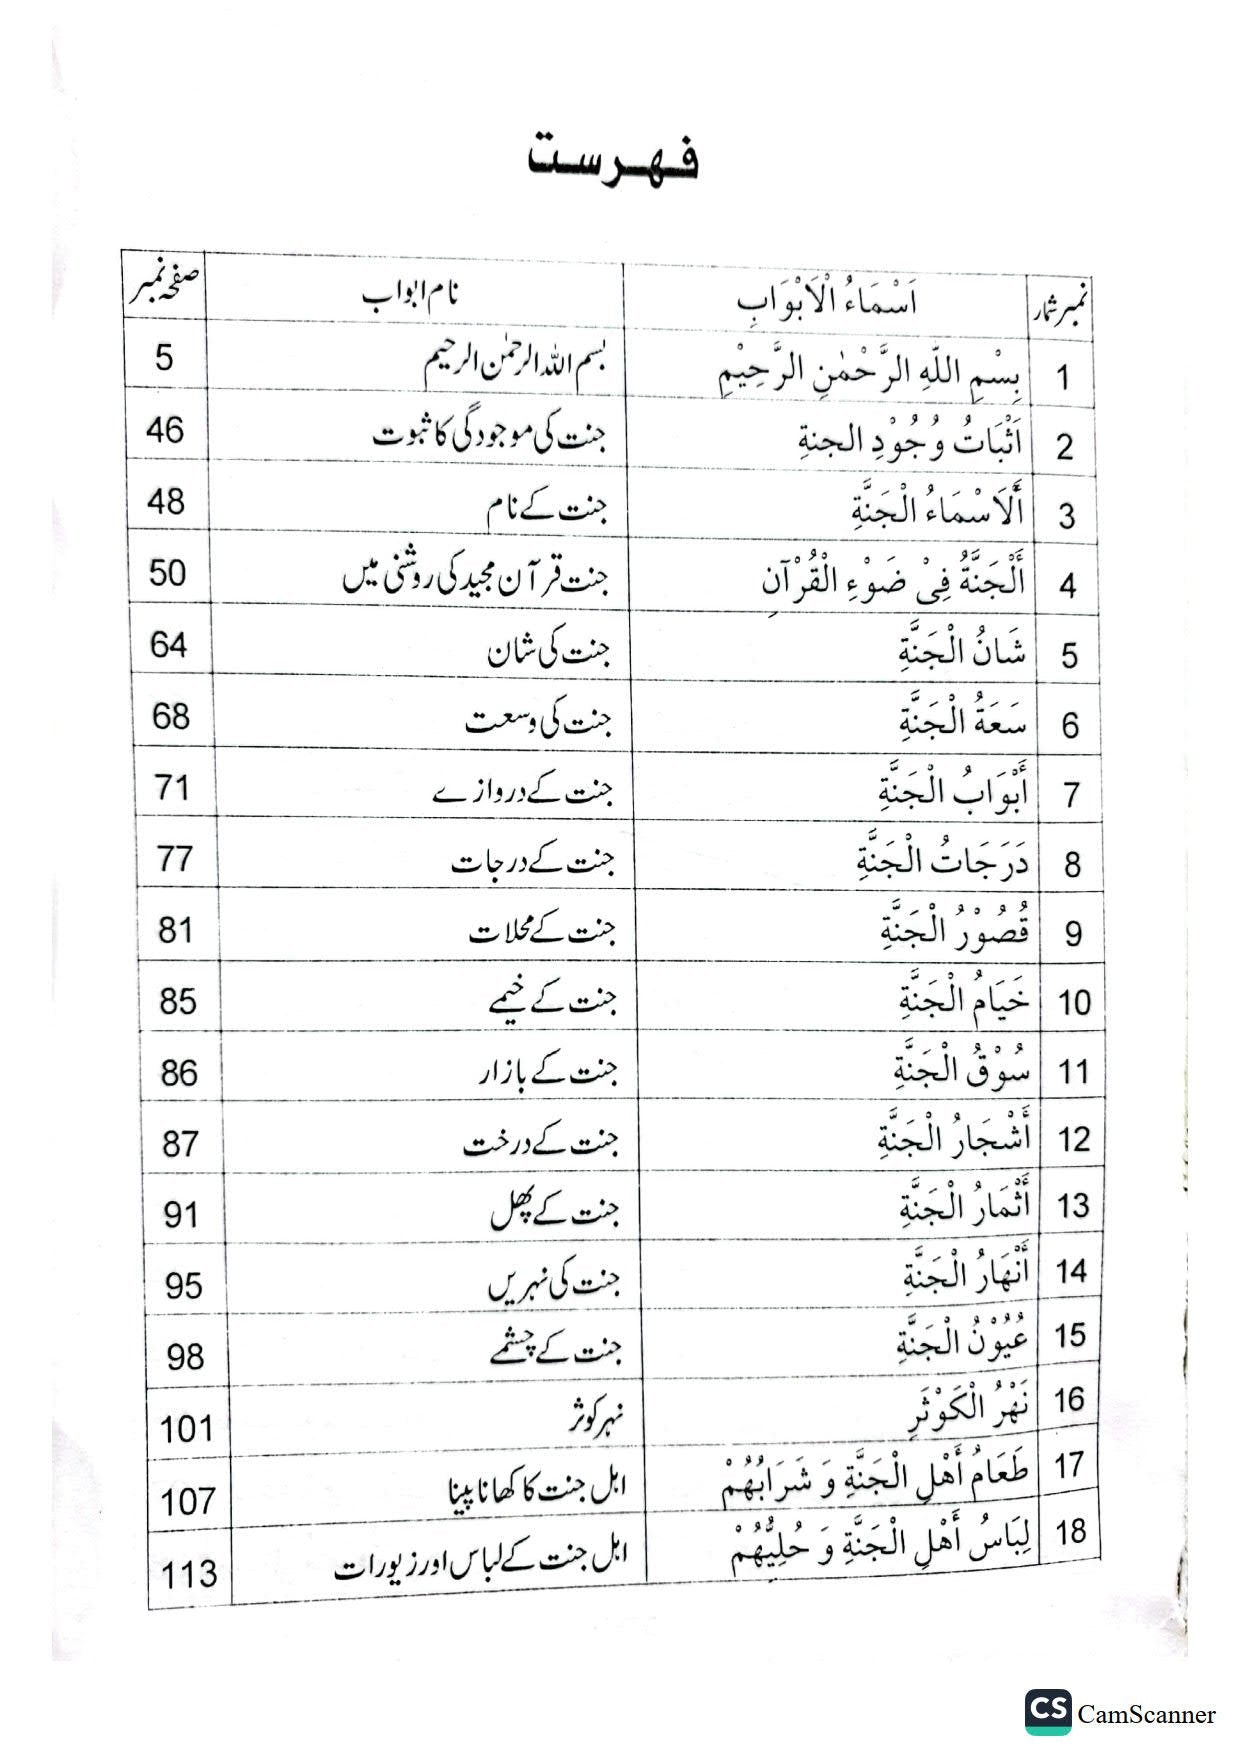 فہرست
نمبر شمار اَسْمَاءُ الْاَبْوَابِ نام ابواب صفحہ نمبر
1 بِسْمِ اللّٰهِ الرَّحْمٰنِ الرَّحِيْمِ بسم اللہ الرحمٰن الرحیم 5
2 اَثْبَاتُ وُجُوْدِ الجنةِ جنت کی موجودگی کا ثبوت 46
3 أَلَاسْمَاءُ الْجَنَّةِ جنت کے نام 48
4 أَلْجَنَّةُ فِىْ ضَوْءِ الْقُرْآنِ جنت قرآن مجید کی روشنی میں 50
5 شَانُ الْجَنَّةِ جنت کی شان 64
6 سَعَةُ الْجَنَّةِ جنت کی وسعت 68
7 أَبْوَابُ الْجَنَّةِ جنت کے دروازے 71
8 دَرَجَاتُ الْجَنَّةِ جنت کے درجات 77
9 قُصُوْرُ الْجَنَّةِ جنت کے محلات 81
10 خَيَامُ الْجَنَّةِ جنت کے خیمے 85
11 سُوْقُ الْجَنَّةِ جنت کے بازار 86
12 أَشْجَارُ الْجَنَّةِ جنت کے درخت 87
13 أَثْمَارُ الْجَنَّةِ جنت کے پھل 91
14 أَنْهَارُ الْجَنَّةِ جنت کی نہریں 95
15 عُيُوْنُ الْجَنَّةِ جنت کے چشمے 98
16 نَهْرُ الْكَوْثَرِ نہر کوثر 101
17 طَعَامُ أَهْلِ الْجَنَّةِ وَ شَرَابُهُمْ اہل جنت کا کھانا پینا 107
18 لِبَاسُ أَهْلِ الْجَنَّةِ وَ حُلِيُّهُمْ اہل جنت کے لباس اور زیورات 113
CS CamScanner